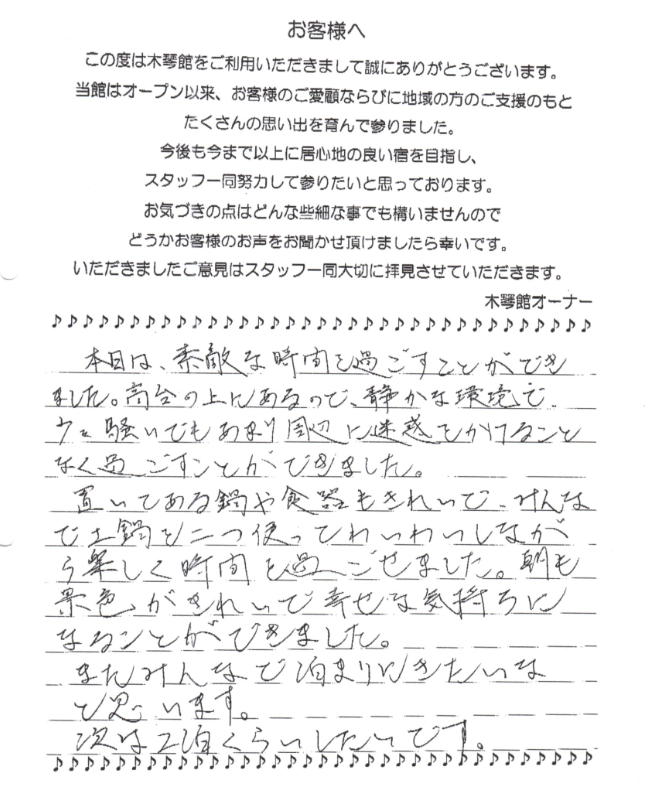 お客様へ
この度は木琴館をご利用いただきまして誠にありがとうございます。
当館はオープン以来、お客様のご愛顧ならびに地域の方のご支援のもと
たくさんの思い出を育んで参りました。
今後も今まで以上に居心地の良い宿を目指し、
スタッフ一同努力して参りたいと思っております。
お気づきの点はどんな些細な事でも構いませんので
どうかお客様のお声をお聞かせ頂けましたら幸いです。
いただきましたご意見はスタッフ一同大切に拝見させていただきます。
木琴館オーナー
♪♪♪♪♪♪♪♪♪♪♪♪♪♪♪♪♪♪♪♪♪♪♪♪♪♪♪♪♪♪♪♪♪♪♪
本日は、素敵な時間を過ごすことができ
ました。高台の上にあるので、静かな環境で
騒いでもあまり周辺に迷惑をかけること
なく過ごすことができました。
置いてある鍋や食器もきれいで、みんな
で土鍋を二つ使ってわいわいしなが
ら楽しく時間を過ごせました。朝も
景色がきれいで幸せな気持ちに
なることができました。
またみんなで泊まりにきたいな
と思います。
次は2泊くらいしたいです。
♪♪♪♪♪♪♪♪♪♪♪♪♪♪♪♪♪♪♪♪♪♪♪♪♪♪♪♪♪♪♪♪♪♪♪